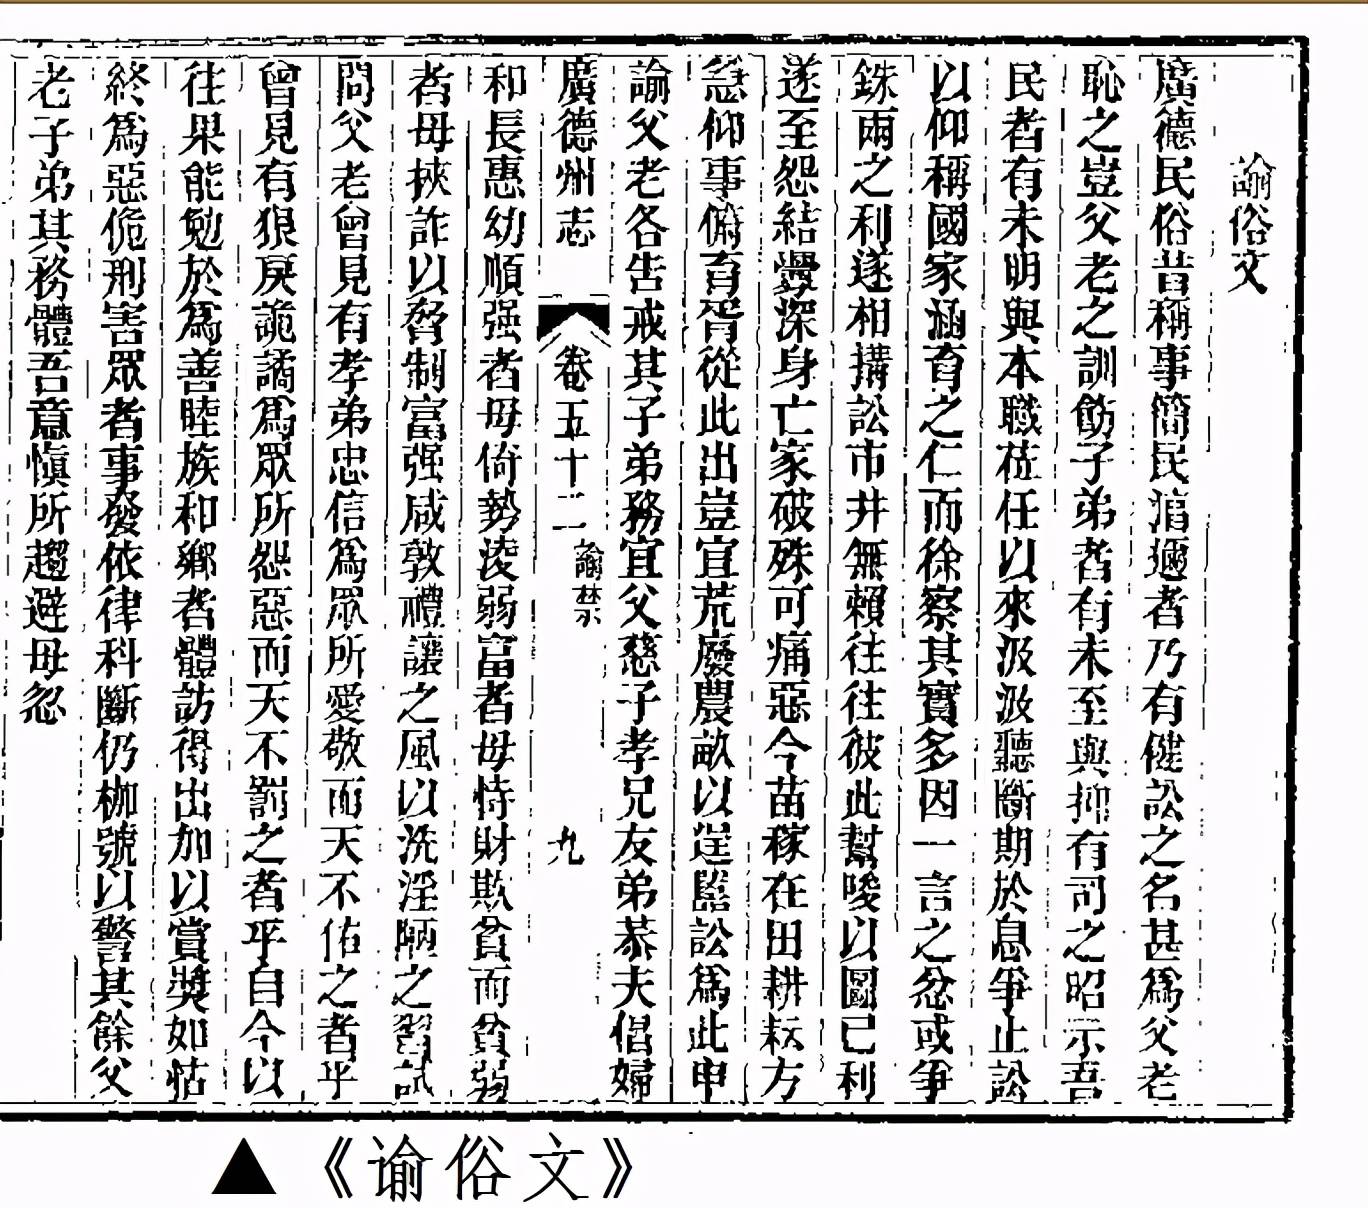 諭俗文
廣德民俗昔稱事簡民淳邇者乃有健訟之名甚爲父老
恥之豈父老之訓飭子弟者有未至與抑有司之昭示吾
民者有未明與本職莅任以來汲汲聽斷期於息爭止訟
以仰稱國家涵育之仁而徐察其實多因一言之忿或爭
銖兩之利遂相搆訟市井無賴往往彼此幫唆以圖己利
遂至怨結釁深身亡家破殊可痛惡今苗稼在田耕耘方
急仰事俯育胥從此出豈宜荒廢農畝以逞嚚訟爲此申
諭父老各告戒其子弟務宜父慈子孝兄友弟恭夫倡婦
廣德州志 卷五十二 諭禁 九
和長惠幼順强者毋倚勢淩弱富者毋恃財欺貧而貧弱
者毋挾詐以脅制富强咸敦禮讓之風以洗淫陋之習試
問父老曾見有孝弟忠信爲眾所愛敬而天不佑之者乎
曾見有狠戾詭譎爲眾所怨惡而天不罰之者乎自今以
往果能勉於爲善睦族和鄉者體訪得出加以賞獎如怙
終爲惡佹刑害眾者事發依律科斷仍枷號以警其餘父
老子弟其務體吾意愼所趨避毋忽
▲《谕俗文》